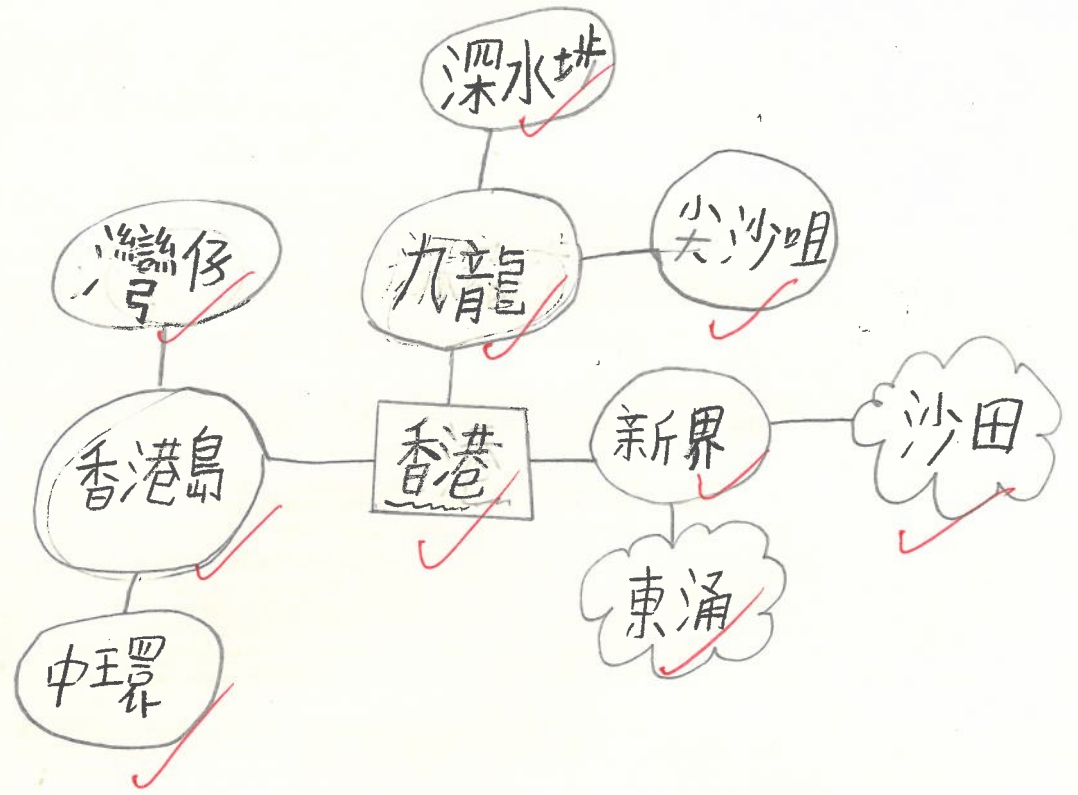 深水埗
灣仔
九龍
尖沙咀
香港島
香港
新界
沙田
東涌
中環